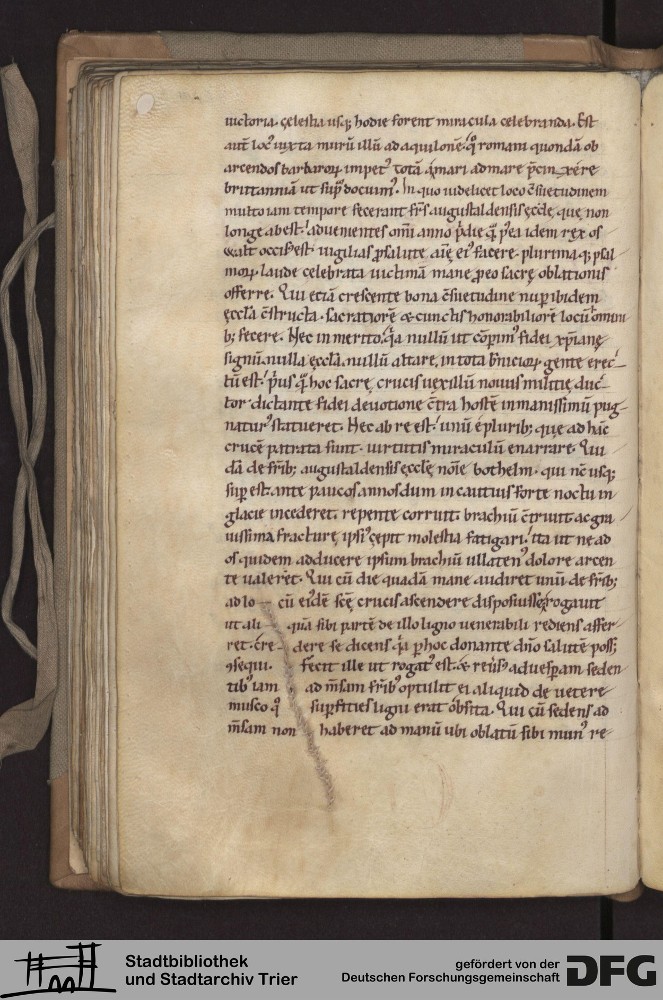 uictoria. cęlestia usq; hodie forent miracula celebranda. Est
aut̄ loc᷒ iuxta murū illū ad aquilonē. qͦ romani quondā ob
arcendos barbaroꝝ impet᷒ totā a mari ad mare p̄cinxere
brittanniā ut sup᷒ docuim᷒. In quo uidelicet loco c̄suetudinem
multo iam tempore fecerant fr̄s augustaldensis ęccłę. quę non
longe abest. aduenientes om̄i anno p̄die q̄ p᷒ea idem rex os
walt occis᷒ est. uigilias ꝓ salute aīę ei᷒ facere. plurimaq; psal
moꝝ laude celebrata uictimā mane ꝓ eo sacrę oblationis
offerre. Qui etiā crescente bona c̄suetudine nuꝑ ibidem
ęccła c̄structa. sacratiorē & cunctis honorabiliorē locū omni
b; fecere. Hec inmerito. q̇a nullū ut cōperim᷒ fidei xp̄ianę
signū. nulla ęccła. nullū altare. in tota b̄nicioꝝ gente erec
tū est. p̓us q̄ hoc sacrę crucis uexillū nouus militię duc
tor dictante fidei deuotione c̄tra hostē inmanissimū pug
natur᷒ statueret. Nec ab re est. unū e plurib; que ad hāc
crucē patrata sunt. uirtutis miraculū enarrare. Qui
dā de fr̄ib; augustaldensis ęccłę noīe bothelm. qui nc̄ usq;
suꝑ est. ante paucos annos dum incautius forte noctu in
glacie incederet. repente corruit. brachiū c̄triuit. ac gra
uissima fracturę ipsi᷒ cępit molestia fatigari. ita ut ne ad
os quidem adducere ipsum brachiū ullaten᷒ dolore arcen
te ualeret. Qui cū die quadā mane audiret unū de fr̄ib;
ad lo cū eiusdē sc̄ę crucis ascendere disposuisse. rogauit
ut ali quā sibi partē de illo ligno uenerabili rediens affer
ret. cre dere se dicens. q̇a ꝑ hoc donante dn̄o salutē poss;
ꝯsequi. fecit ille ut rogat᷒ est. & reūs᷒ ad uesꝑam seden
tib᷒ iam ad m̄sam fr̄ib᷒ optulit ei aliquid de uetere
musco qͦ suꝑficies ligni erat obsita. Qui cū sedens ad
m̄sam non haberet ad manū ubi oblatū sibi mun᷒ re
Stadtbibliothek
und Stadtarchiv Trier
gefördert von der
Deutschen Forschungsgemeinschaft
DFG